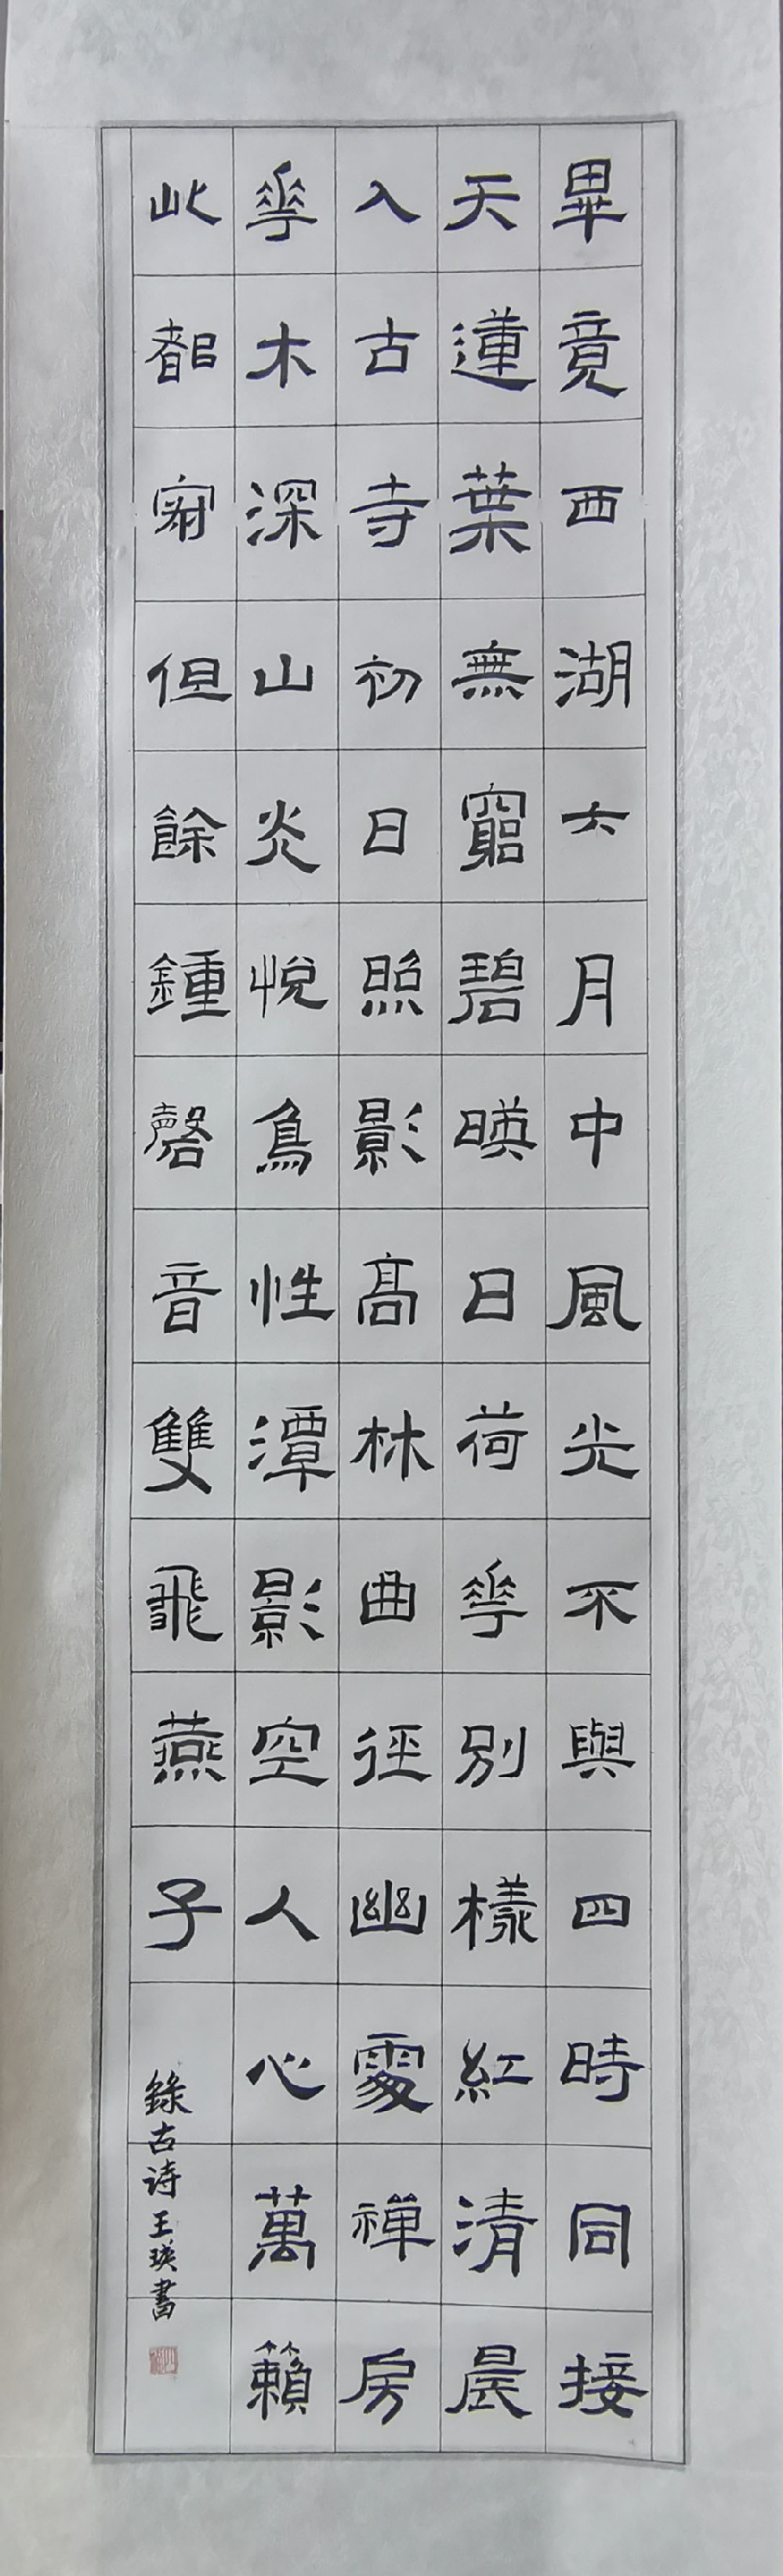 畢竟西湖六月中風光不與四時同接
天蓮葉無窮碧暎日荷華別樣紅清晨
入古寺初日照影髙林曲徑幽處禅房
華木深山光悅鳥性潭影空人心萬籟
此都寂但餘鍾磬音雙飛燕子
錄古诗王瑛書